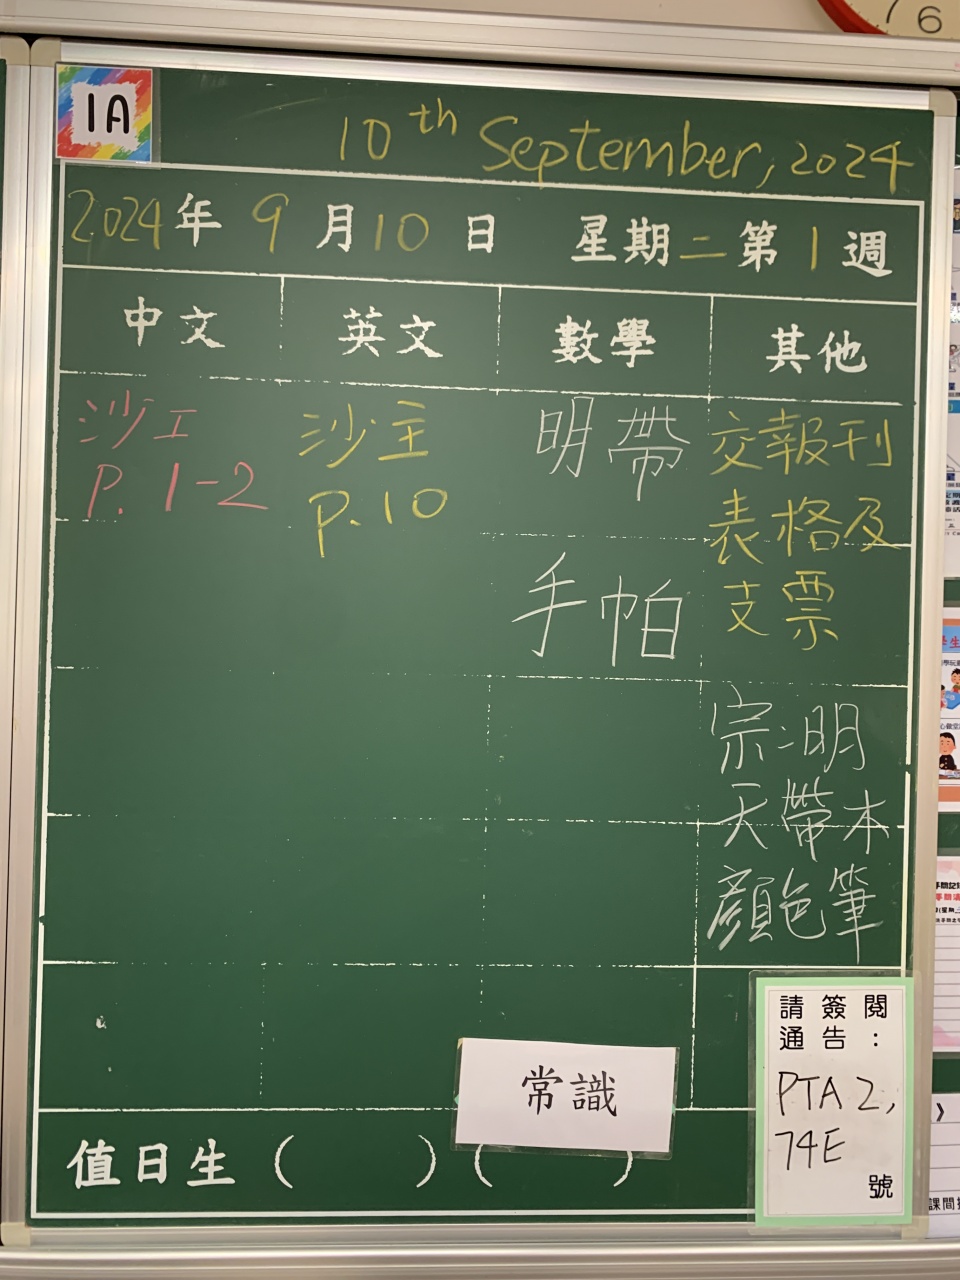 1A
10th September, 2024
2024年 9月10日 星期二 第1週
中文 英文 數學 其他
沙工
P. 1-2
沙主
P. 10
明帶
手帕
交報刊
表格及
支票
宗:明
天帶本
顏色筆
常識
值日生( )( )
請簽閱
通告:
PTA 2,
74E
號
6